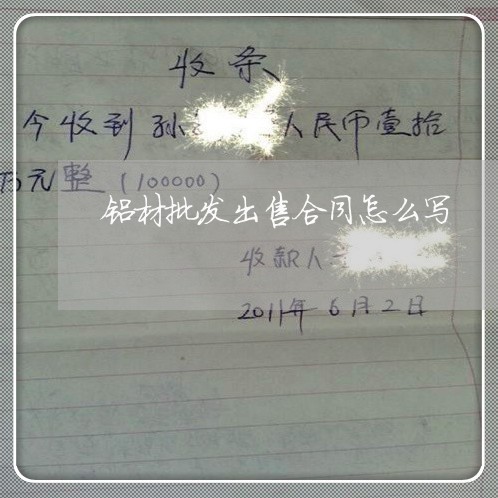 收条
今收到孙 人民币壹拾
万元整（100000）
铝材批发出售合同怎么写
收款人
2011年6月2日